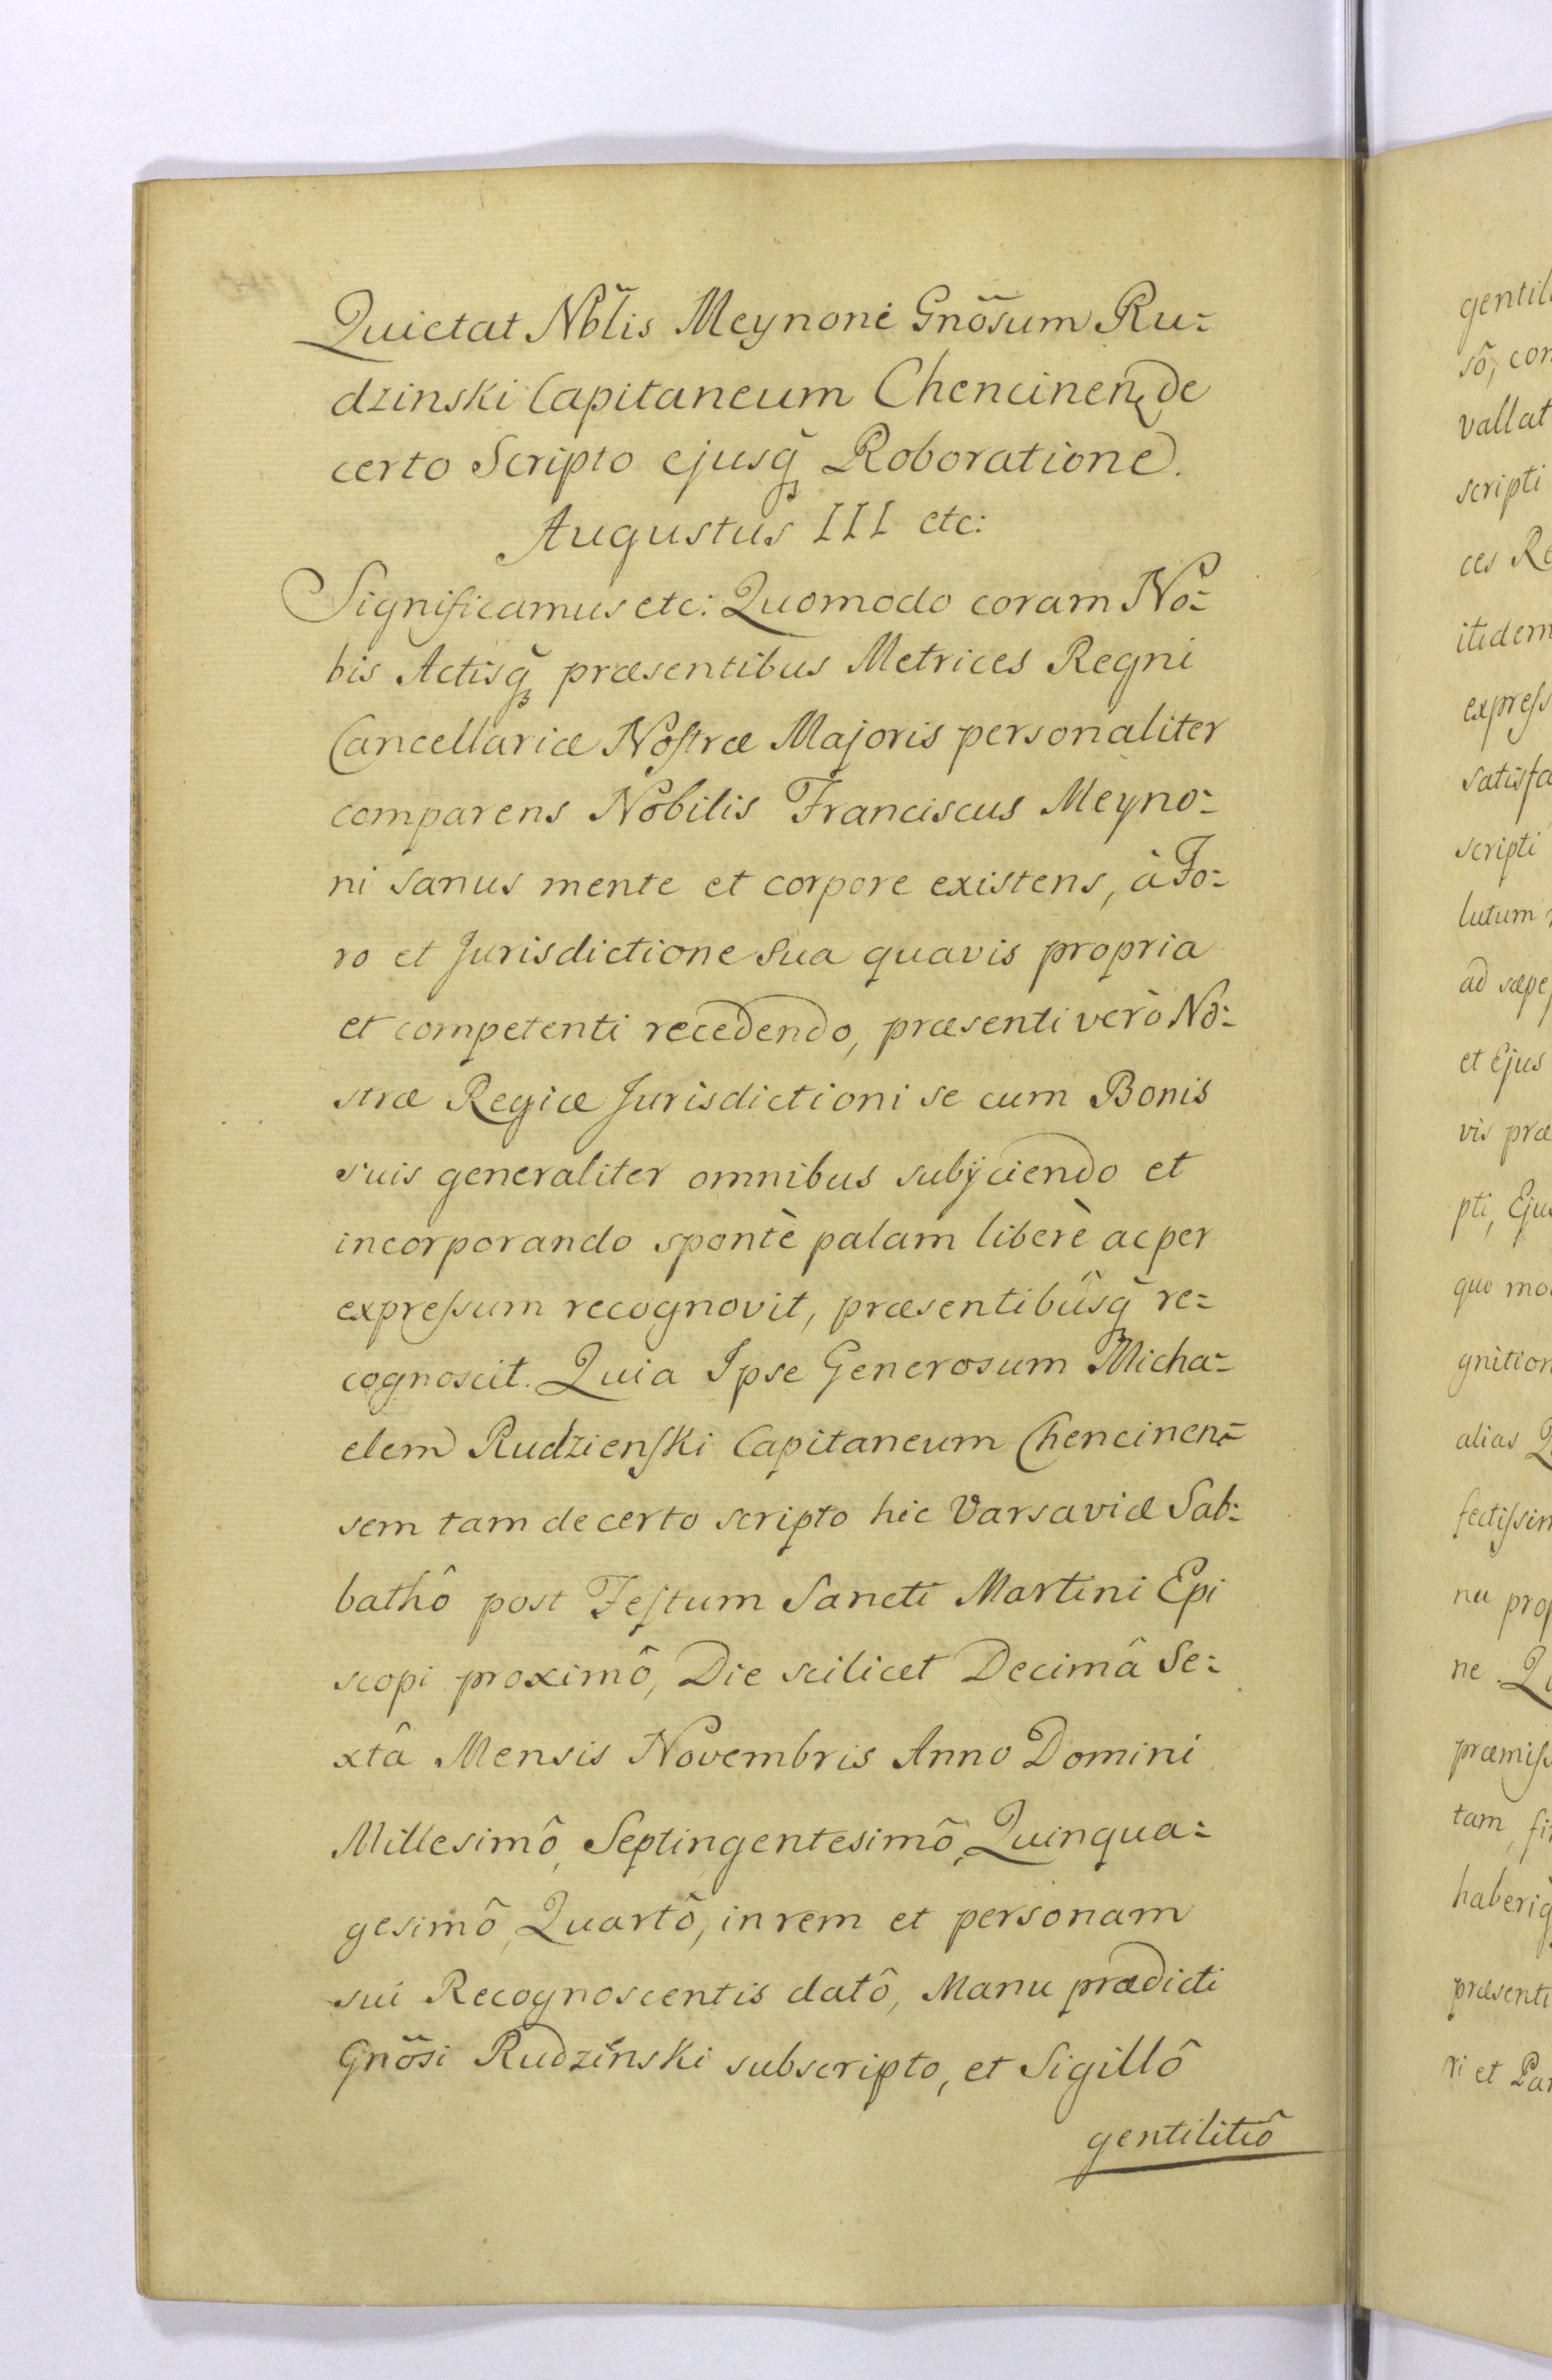 Quietat Nb̃lis Meynoni Gnõsum Ru-
dzinski Capitaneum Chencinen̄ de
certo Scripto ejusq̃ Roboratione.
Augustus III etc:
Significamus etc: Quomodo coram No-
bis Actisq̃ præsentibus Metrices Regni
Cancellariæ Nostræ Majoris personaliter
comparens Nobilis Franciscus Meyno-
ni sanus mente et corpore existens, à Fo-
ro et Jurisdictione sua quavis propria
et competenti recedendo, præsenti verò No-
stræ Regiæ Jurisdictioni se cum Bonis
suis generaliter omnibus subÿciendo et
incorporando spontè palam liberè ac per
expressum recognovit, præsentibûsq̃ re-
cognoscit. Quia Ipse Generosum Micha-
elem Rudzienski Capitaneum Chencinen-
sem tam de certo scripto hic Varsaviæ Sab-
bathô post Festum Sancti Martini Epi
scopi proximô, Die scilicet Decimâ Se-
xtâ Mensis Novembris Anno Domini
Millesimô, Septingentesimô, Quinqua-
gesimô, Quartô, in rem et personam
sui Recognoscentis datô, Manu prædicti
Gnõsi Rudziński subscripto, et Sigillô
gentilitiô
gentil
sô, con
vallat
scripti
ces Re
itidem
express
satisfa
scripti
lutum
ad sæpe
et Ejus
vis præ
pti, Eju
quo mo
gnition
alias Q
fectissim
nu prop
ne. Q
præmiss
tam, fi
haberiq̃
præsenti
ri et Par